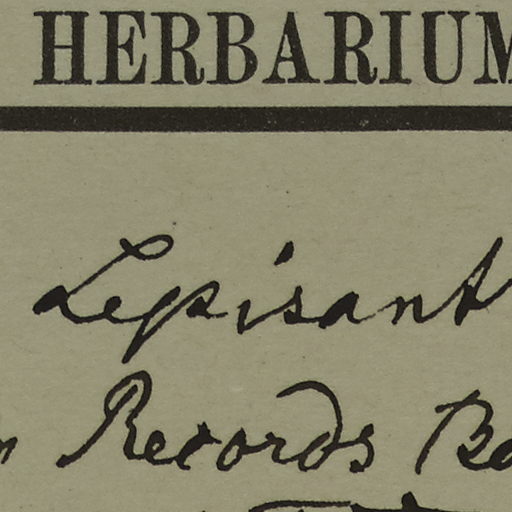 HERBARIUM
Lepisant
Records Bo